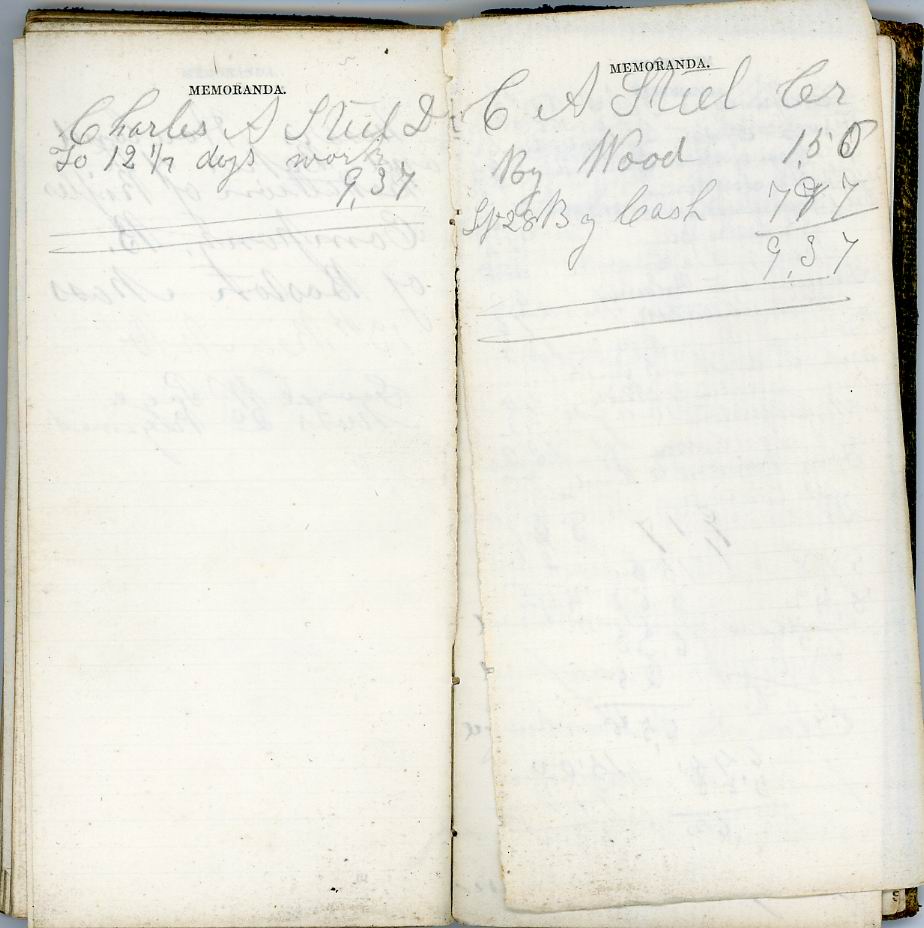 MEMORANDA.
Charles A Steel D
To 12 1/2 days work
9,37
MEMORANDA.
C A Steel Cr
By Wood 1,50
By Cash 7 7
9,37